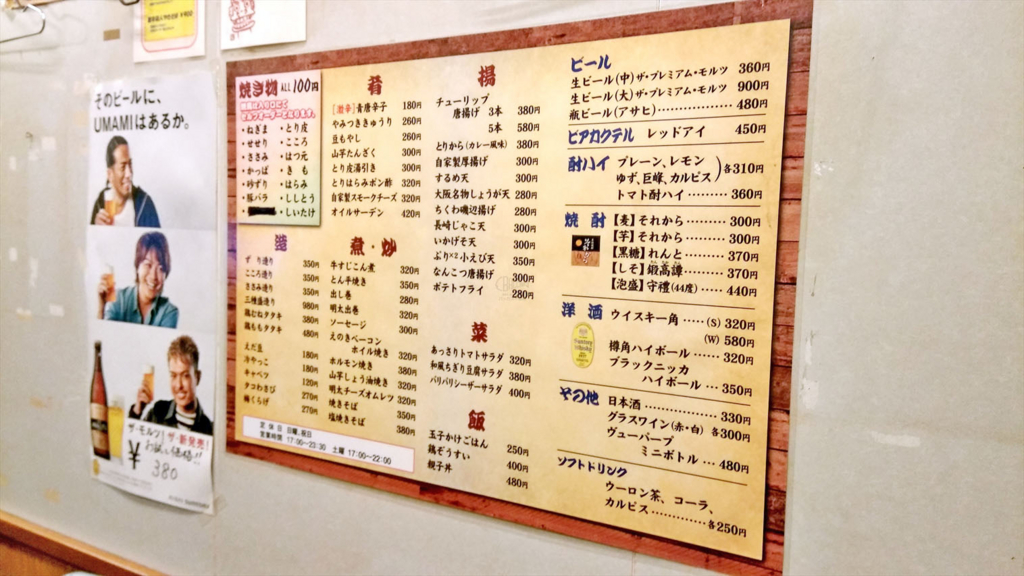 そのビールに、
UMAMIはあるか。
ザ・モルツ！ザ・新発売！
お試し価格!!
¥380
焼き物 ALL 100円
・ねぎま ・とり皮
・せせり ・こころ
・ささみ ・はつ元
・かっぱ ・きも
・砂ずり ・はらみ
・豚バラ ・ししとう
・しいたけ
肴
［激辛］青唐辛子 180円
やみつききゅうり 260円
豆もやし 260円
山芋たんざく 300円
とり皮湯引き 300円
とりはらみポン酢 320円
自家製スモークチーズ 320円
オイルサーデン 420円
造
ずり造り 350円
こころ造り 350円
ささみ造り 350円
三種盛造り 980円
鶏むねタタキ 380円
鶏ももタタキ 480円
えだ豆 180円
冷やっこ 180円
キャベツ 120円
タコわさび 270円
梅くらげ 270円
煮・炒
牛すじこん煮 320円
とん平焼き 350円
出し巻 280円
明太出巻 320円
ソーセージ 300円
えのきベーコン
ホイル焼き 320円
ホルモン焼き 380円
山芋しょう油焼き 320円
明太チーズオムレツ 320円
焼きそば 350円
塩焼きそば 380円
定休日 日曜、祝日
営業時間 17:00〜23:30 土曜 17:00〜22:00
揚
チューリップ
唐揚げ 3本 380円
5本 580円
とりから(カレー風味) 380円
自家製厚揚げ 300円
するめ天 300円
大阪名物しょうが天 280円
ちくわ磯辺揚げ 280円
長崎じゃこ天 300円
いかげそ天 300円
ぷり×2小えび天 350円
なんこつ唐揚げ 300円
ポテトフライ 280円
菜
あっさりトマトサラダ 320円
和風ちぎり豆腐サラダ 380円
パリパリシーザーサラダ 400円
飯
玉子かけごはん 250円
鶏ぞうすい 400円
親子丼 480円
ビール
生ビール(中)ザ・プレミアム・モルツ 360円
生ビール(大)ザ・プレミアム・モルツ 900円
瓶ビール(アサヒ)………………480円
ビアカクテル レッドアイ 450円
酎ハイ プレーン、レモン
ゆず、巨峰、カルピス 各310円
トマト酎ハイ………360円
焼酎 【麦】それから………300円
【芋】それから………300円
【黒糖】れんと………370円
【しそ】鍛高譚………370円
【泡盛】守禮(44度)……440円
洋酒 ウイスキー角……(S) 320円
(W) 580円
樽角ハイボール……320円
ブラックニッカ
ハイボール…350円
その他 日本酒…………330円
グラスワイン(赤・白)各300円
ヴューパープ
ミニボトル…480円
ソフトドリンク
ウーロン茶、コーラ、
カルピス…………各250円